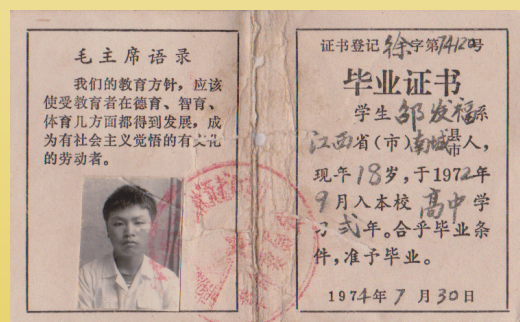 毛主席语录
我们的教育方针，应该
使受教育者在德育、智育、
体育几方面都得到发展，成
为有社会主义觉悟的有文化
的劳动者。
证书登记徐字第74120号
毕业证书
学生邹发福系
江西省（市）南城县市人，
现年18岁，于1972年
9月入本校高中学
习贰年。合乎毕业条
件，准予毕业。
1974年7月30日